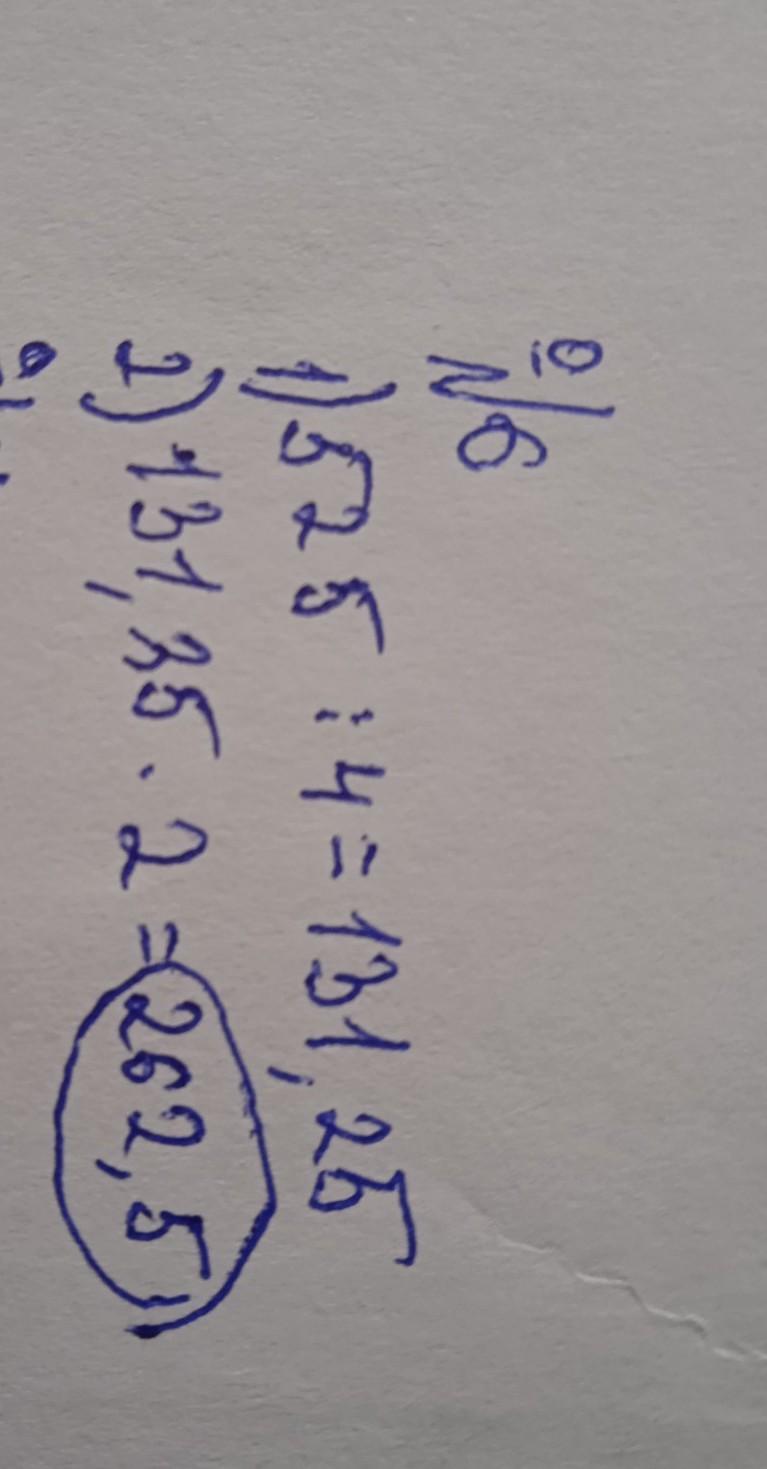 №6
1) 525 : 4 = 131,25
2) 131,25 · 2 = 262,5